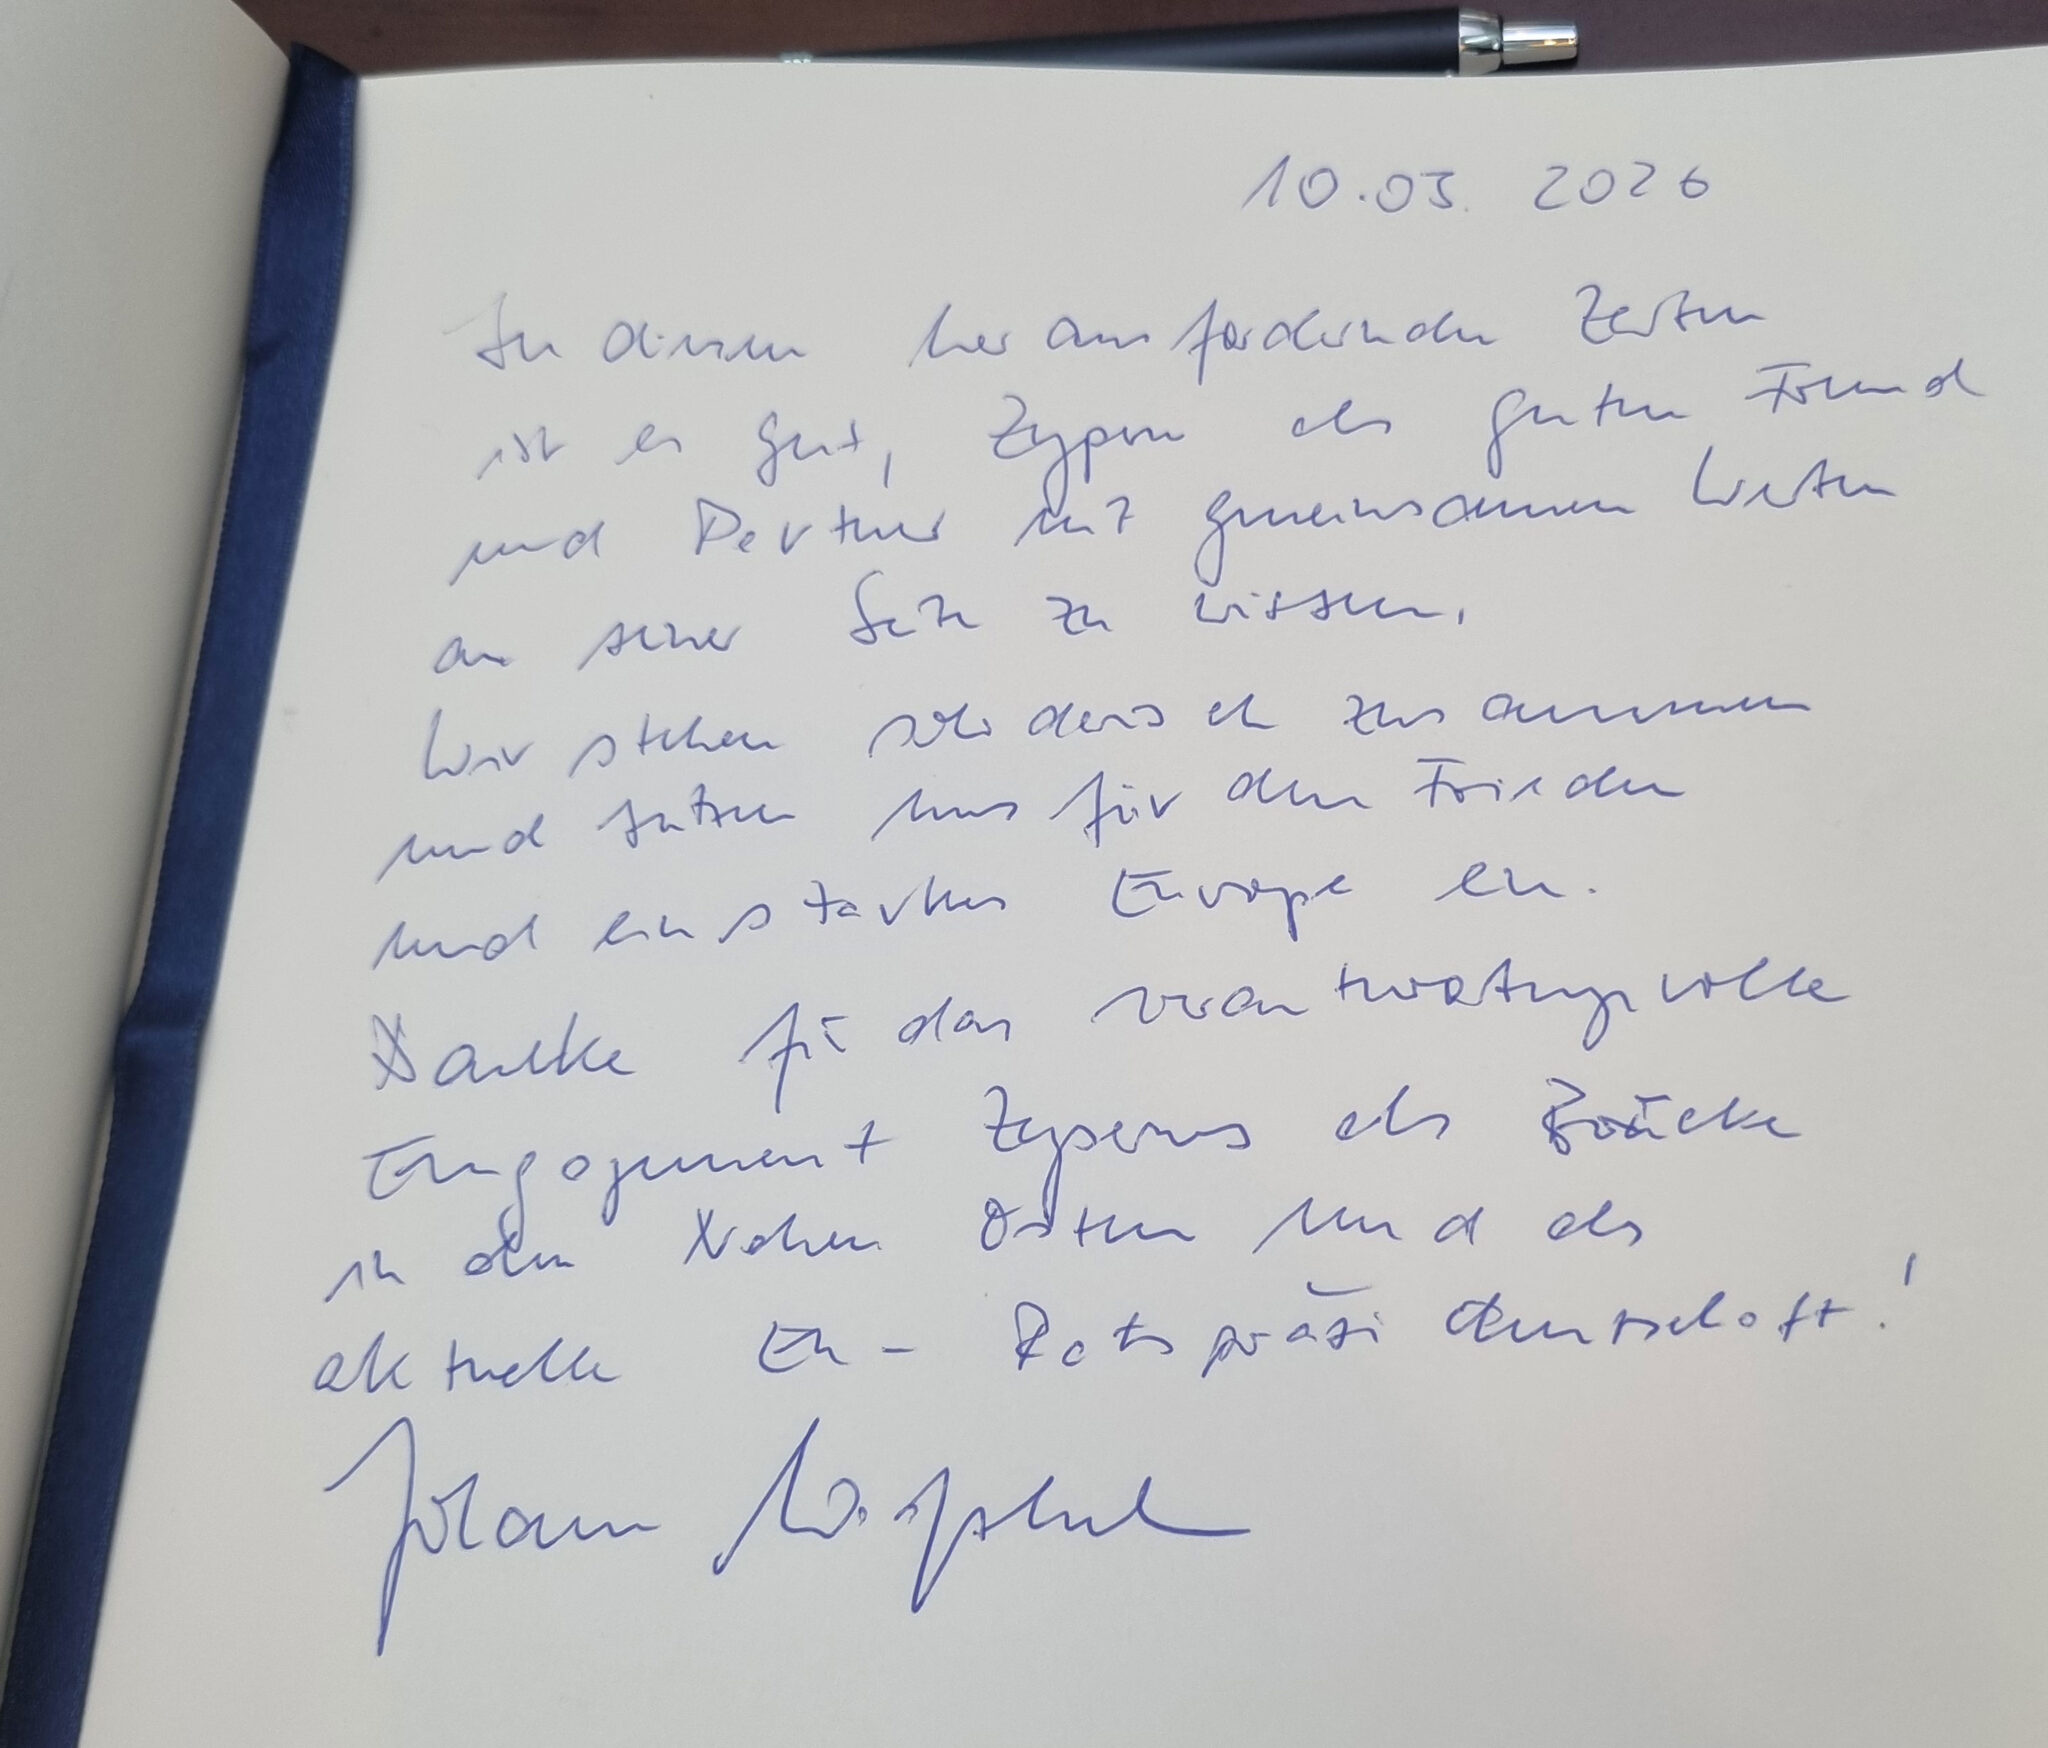 10.03.2026
In diesen herausfordernden Zeiten
ist es gut, Zypern als guten Freund
und Partner mit gemeinsamen Werten
an seiner Seite zu wissen.
Wir stehen solidarisch zusammen
und setzen uns für den Frieden
und ein starkes Europa ein.
Danke für das verantwortungsvolle
Engagement Zyperns als Brücke
in den Nahen Osten und als
aktuelle EU-Ratspräsidentschaft!
Johann